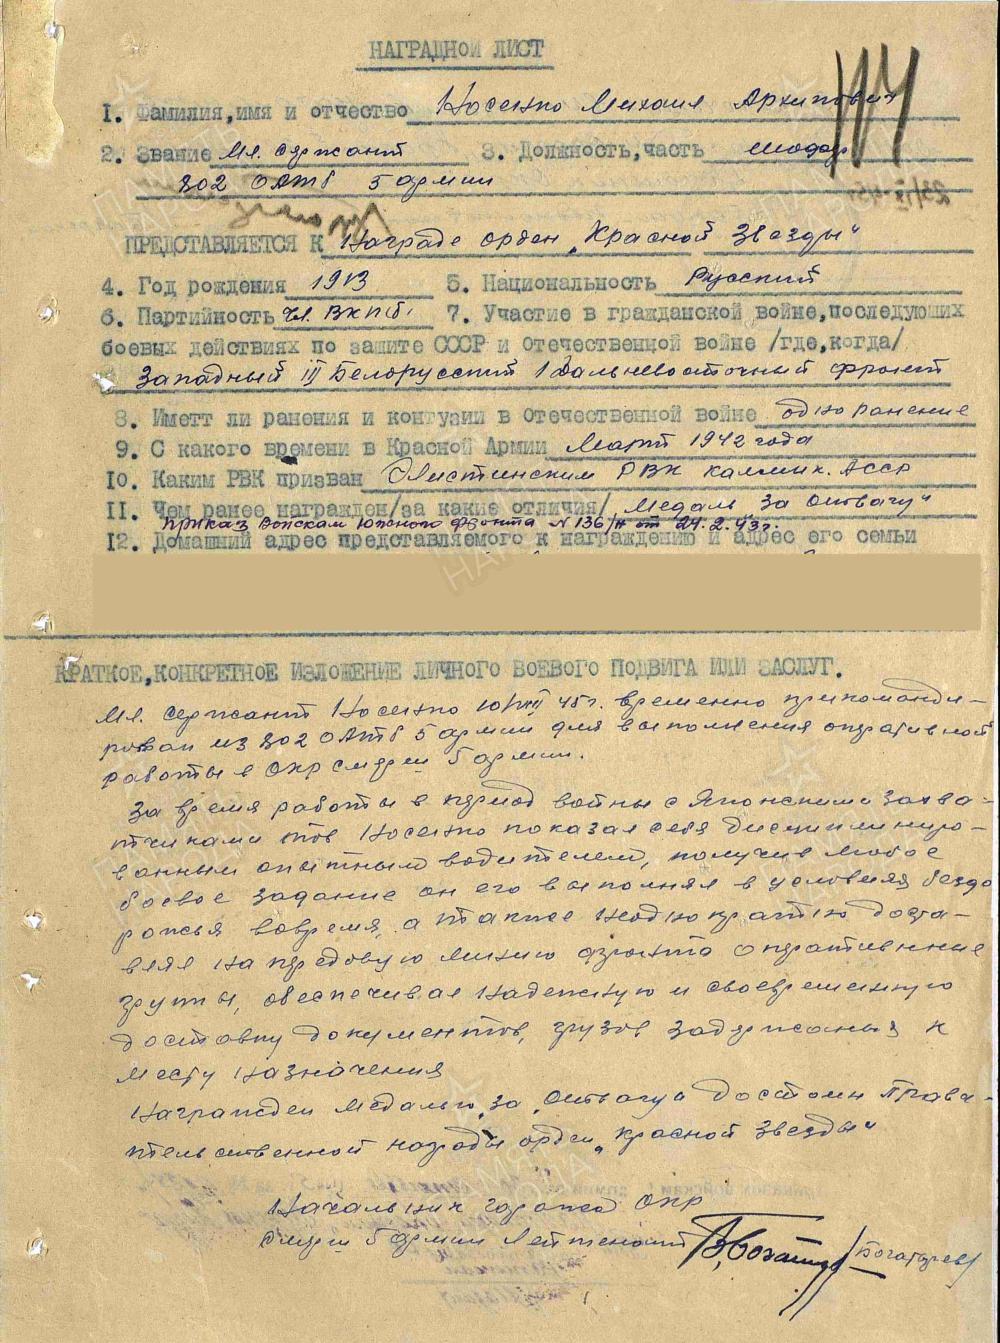 НАГРАДНОЙ ЛИСТ
1. Фамилия, имя и отчество Носенко Михаил Архипович
2. Звание Мл. сержант 3. Должность, часть шофер
302 ОАТБ 5 армии
23/IX-45
ПРЕДСТАВЛЯЕТСЯ К Награде орден „Красной Звезды"
4. Год рождения 1913 5. Национальность Русский
6. Партийность чл. ВКПб. 7. Участие в гражданской войне, последующих
боевых действиях по защите СССР и отечественной войне /где, когда/
Западный III Белорусский 1 Дальневосточный фронт
8. Иметт ли ранения и контузии в отечественной войне одно ранение
9. С какого времени в Красной Армии Март 1942 года
10. Каким РВК призван Элистинским РВК калмик. АССР
11. Чем ранее награжден /за какие отличия/ Медаль „За отвагу"
приказ войскам Южного фронта N 136/н от 24.2.43г.
12. Домашний адрес представляемого к награждению и адрес его семьи
КРАТКОЕ, КОНКРЕТНОЕ ИЗЛОЖЕНИЕ ЛИЧНОГО БОЕВОГО ПОДВИГА ИЛИ ЗАСЛУГ.
Мл. сержант Носенко 10/VIII 45г. временно прикоманди-
рован из 302 ОАТБ 5 армии для выполнения оперативной
работы в ОКР смерш 5 армии.
За время работы в период войны с Японскими захва-
тчиками тов Носенко показал себя дисциплиниро-
ванным опытным водителем, получив любое
боевое задание он его выполнял в условиях бездо
рожья вовремя, а также неоднократно достав-
влял на передовую линию фронта оперативные
группы, обеспечивая надежную и своевременную
доставку документов, грузов задержаных к
месту назначения
Награжден медалью „За „Отвагу" достоин Прави-
тельственной награды орден „Красной Звезды"
Начальник гаража ОКР
Смерш 5 армии Лейтенант /Богатырев/